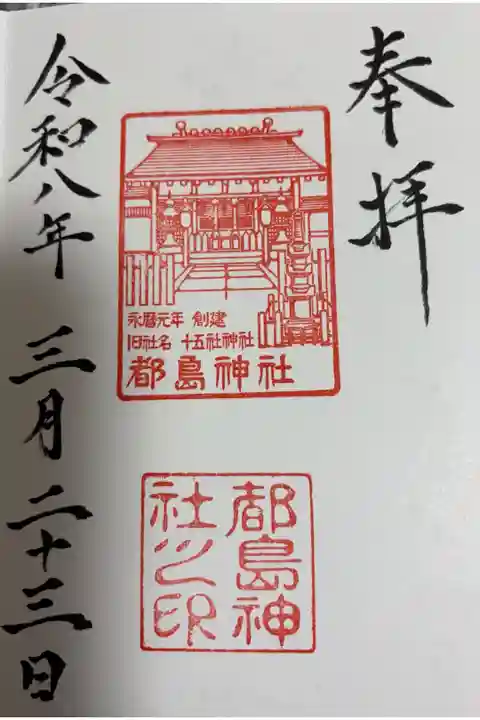 奉拝
永暦元年 創建
旧社名 十五社神社
都島神社
都島神
社之印
令和八年 三月 二十三日